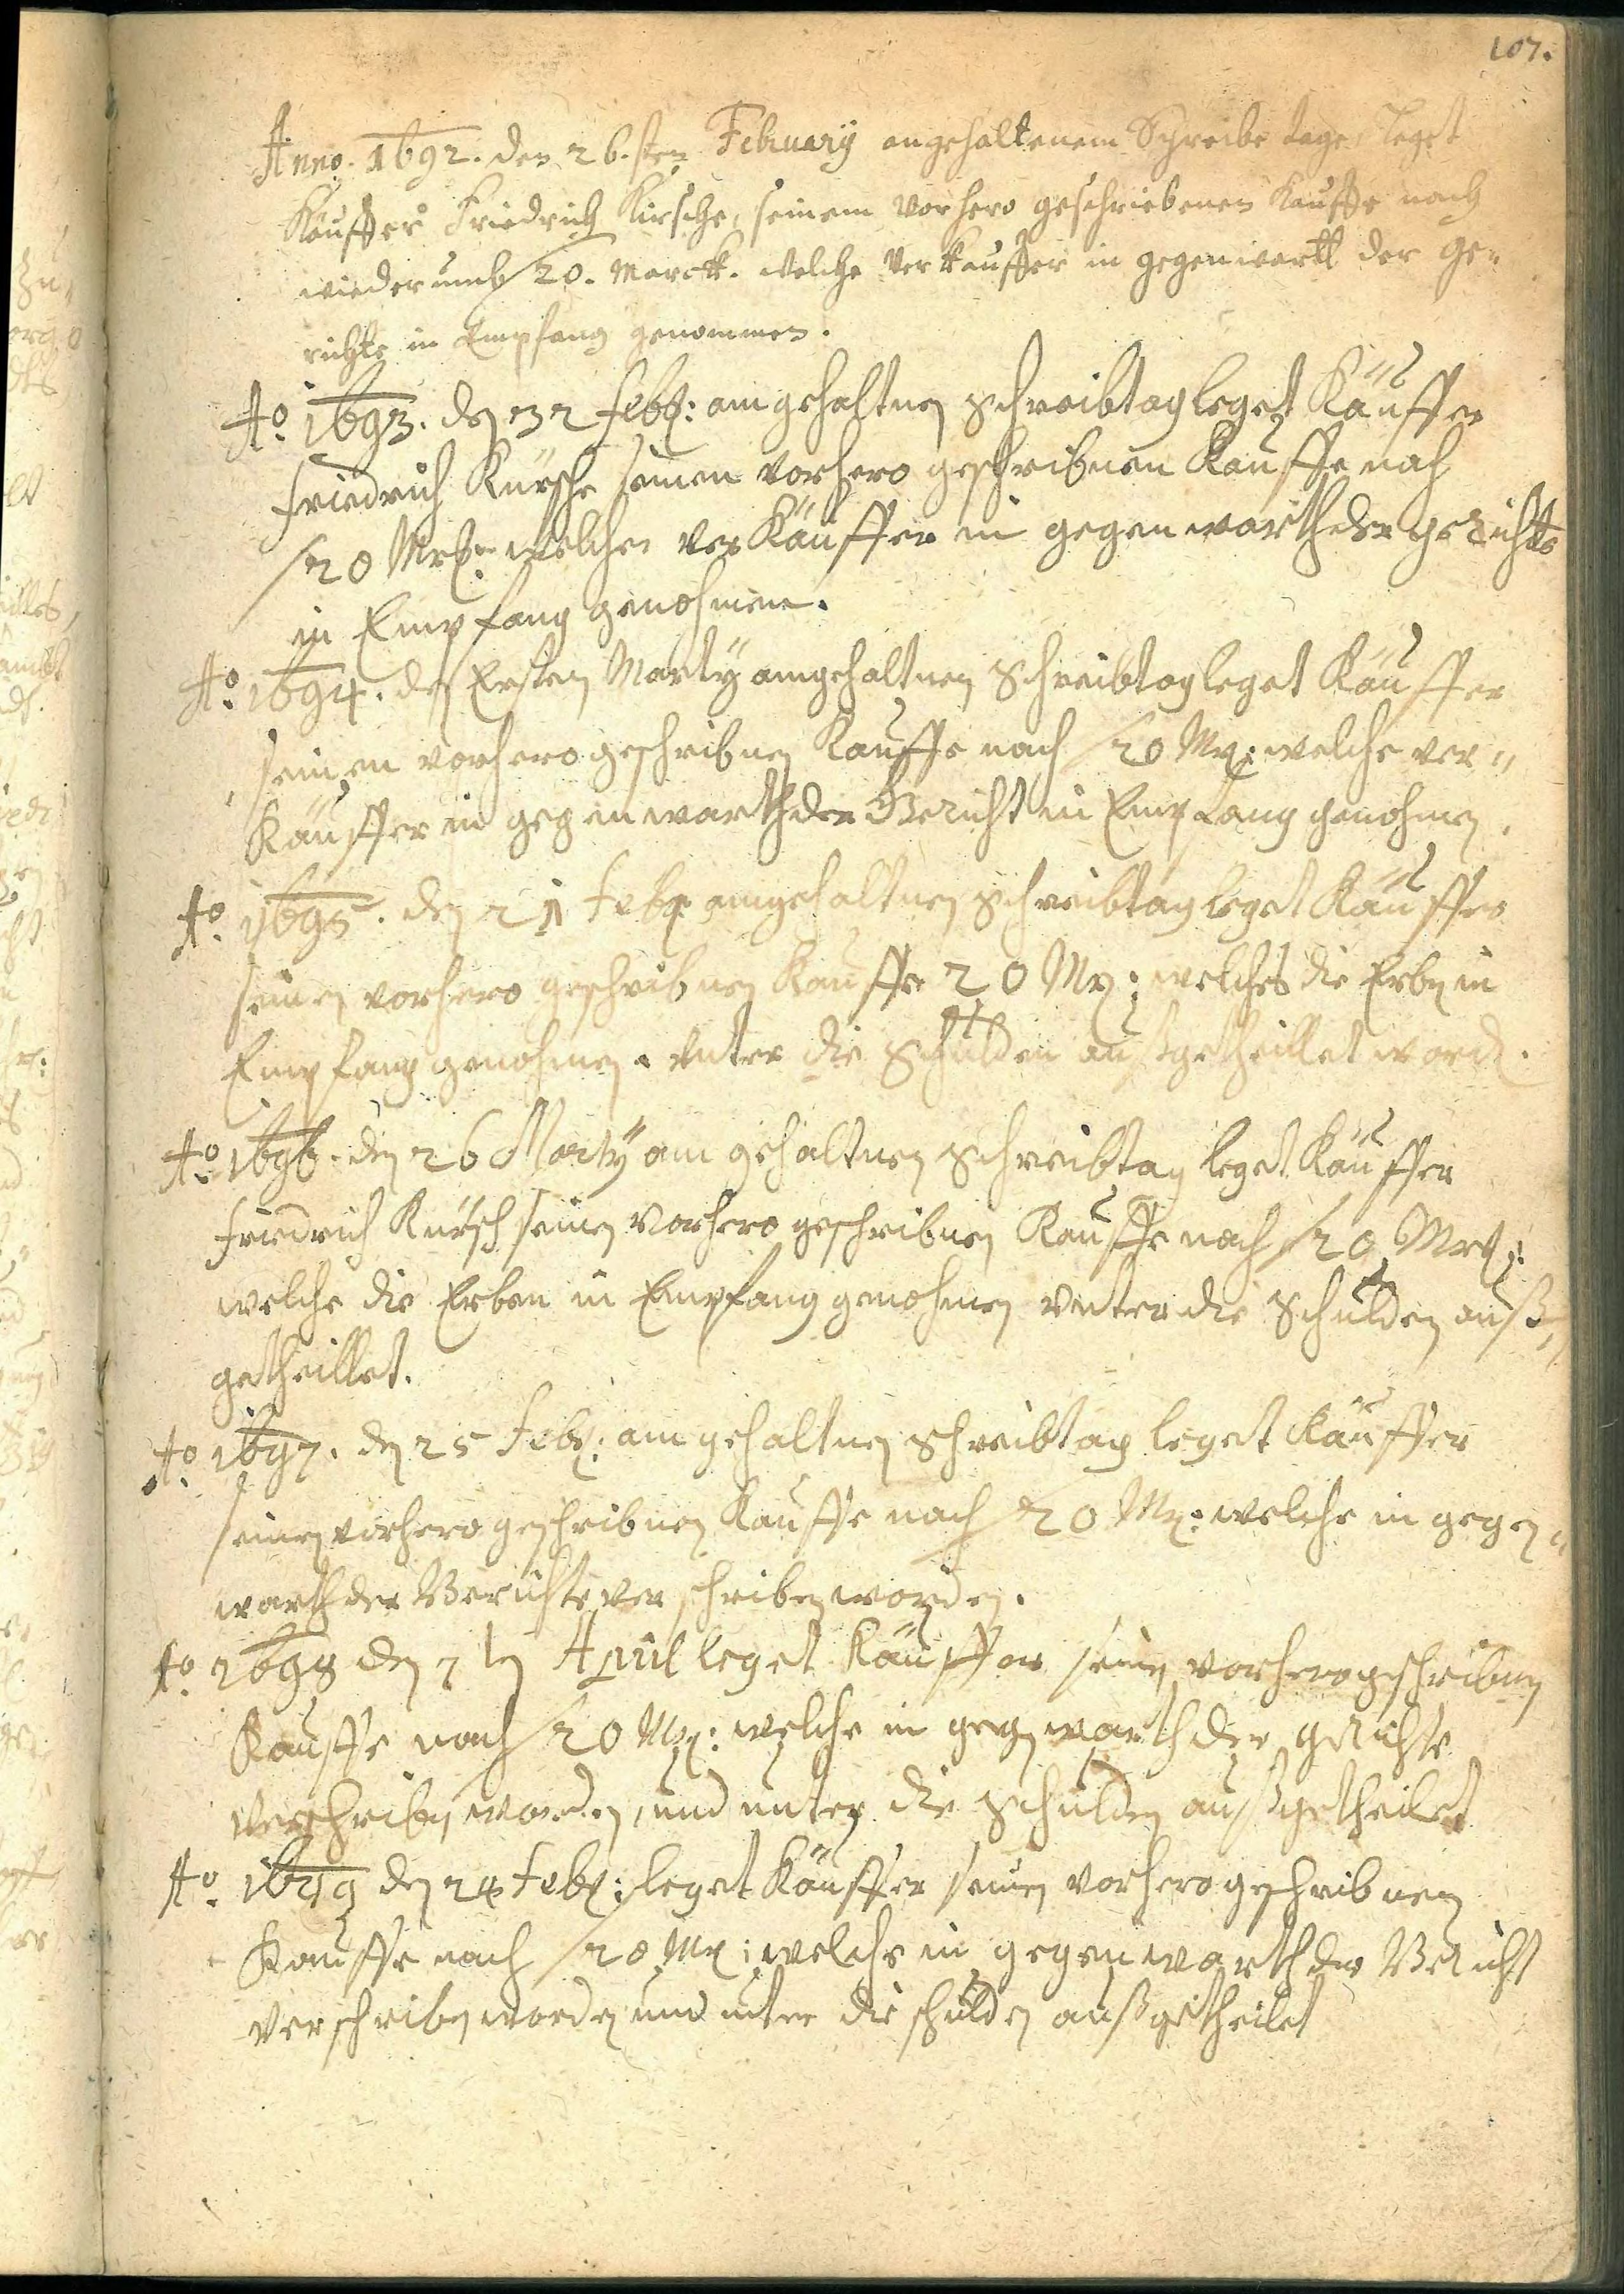 107.
Anno. 1692. den 26.sten February angehaltenem Schreibe tage, leget
Käuffer Friedrich Kirsche, seinem vorhero geschriebenen Kauffe nach
wiederumb 20. Marck. welche Verkäuffer in gegenwartt der Ge-
richte in Empfang genommen.
Ao. 1693. den Febr: am gehaltnen schreibtag leget Käuffer
Friedrich Kürsche seinen vorhero geschribnen Kauffe nach
20 Mrk: welches ver Käuffer in gegenwarth der gerichte
in Empfang genohmen.
Ao. 1694. den Ersten Marty am gehaltnen schreibtag leget Käuffer
seinen vorhero geschribnen Kauffe nach 20 Mr: welche ver-
Käuffer in gegenwarth der Gericht in Empfang genohmen.
Ao. 1695. den 21 Febr am gehaltnen schreibtag leget Käuffer
seinen vorhero geschribnen Kauffe 20 Mr: welches die Erben in
Empfang genohmen. vnter die Schulden außgetheillet word.
Ao. 1696. den 26 Marty am gehaltnen schreibtag leget Käuffer
Friedrich Kürsch seinen vorhero geschribnen Kauffe nach 20 Mrk:
welche die Erben in Empfang genohmen vnter die Schulden auß,
getheillet.
Ao. 1697. den 25 Febr: am gehaltnen schreibtag leget Käuffer
seinen vorhero geschribnen Kauffe nach 20 Mr: welche in gegen-
warth der Gerichte ver schriben worden.
Ao. 1698 den 7 ten April leget Käuffer seinen vorhero geschribnen
Kauffe nach 20 Mr: welche in gegenwarth der gerichte
verschriben worden, und unter die Schulden außgetheilet
Ao. 1699 den 24 Febr: leget Käuffer seinen vorhero geschribnen
Kauffe nach 20 Mr: welche in gegenwarth der Gericht
verschriben worden und unter die schulden außgetheilet